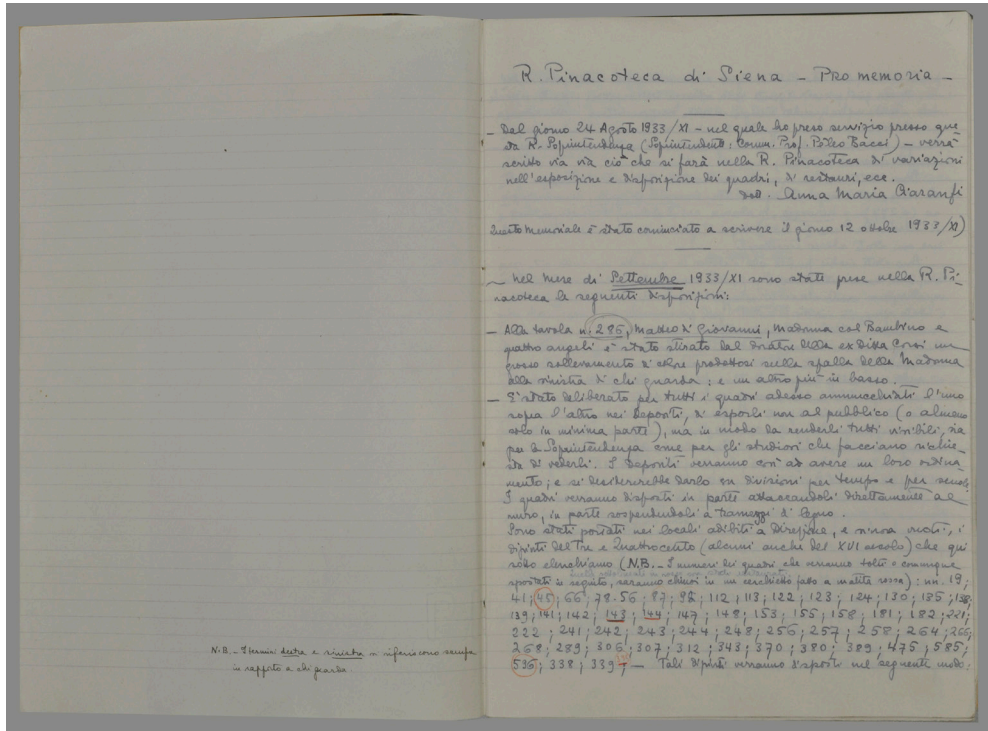 N.B. - I termini destra e sinistra si riferiscono sempre
in rapporto a chi guarda.
R. Pinacoteca di Siena - Pro memoria -
- Dal giorno 24 Agosto 1933/XI - nel quale ho preso servizio presso que-
sta R. Soprintendenza (Soprintendente: Comm. Prof. Pèleo Bacci) - verrà
scritto via via ciò che si farà nella R. Pinacoteca di variazioni
nell'esposizione e disposizione dei quadri, di restauri, ecc.
dott. Anna Maria Ciaranfi
Questo memoriale è stato cominciato a scrivere il giorno 12 ottobre 1933/XI)
- Nel mese di Settembre 1933/XI sono state prese nella R. Pi-
nacoteca le seguenti disposizioni:
- Alla tavola n. 286, Matteo di Giovanni, Madonna col Bambino e
quattro angeli è stato stirato dal doratore della ex Ditta Corsi un
grosso sollevamento di colore prodottosi sulla spalla della Madonna
alla sinistra di chi guarda; e un altro più in basso.
- È stato deliberato per tutti i quadri adesso ammucchiati l'uno
sopra l'altro nei depositi, di esporli non al pubblico (o almeno
solo in minima parte), ma in modo da renderli tutti visibili, sia
per la Soprintendenza come per gli studiosi che facciano richie-
sta di vederli. I depositi verranno così ad avere un loro ordina-
mento; e si desidererebbe darlo con divisioni per tempo e per scuole.
I quadri verranno disposti in parte attaccandoli direttamente al
muro, in parte sospendendoli a tramezzi di legno.
Sono stati portati nei locali adibiti a Direzione, e sinora vuoti, i
dipinti del Tre e Quattrocento (alcuni anche del XVI secolo) che qui
sotto elenchiamo (N.B. - I numeri dei quadri che verranno tolti e comunque
spostati in seguito, saranno chiusi in un cerchietto fatto a matita rossa): nn. 19;
41; 45; 66; 78. 56; 87; 96; 112; 113; 122; 123; 124; 130; 135; 138;
139; 141; 142; 143; 144; 147; 148; 153; 155; 158; 181; 182; 221;
222; 241; 242; 243; 244; 248; 256; 257; 258; 264; 266;
268; 289; 306; 307; 312; 343; 370; 380; 389; 475; 585;
536; 338; 339 - Tali dipinti verranno disposti nel seguente modo: